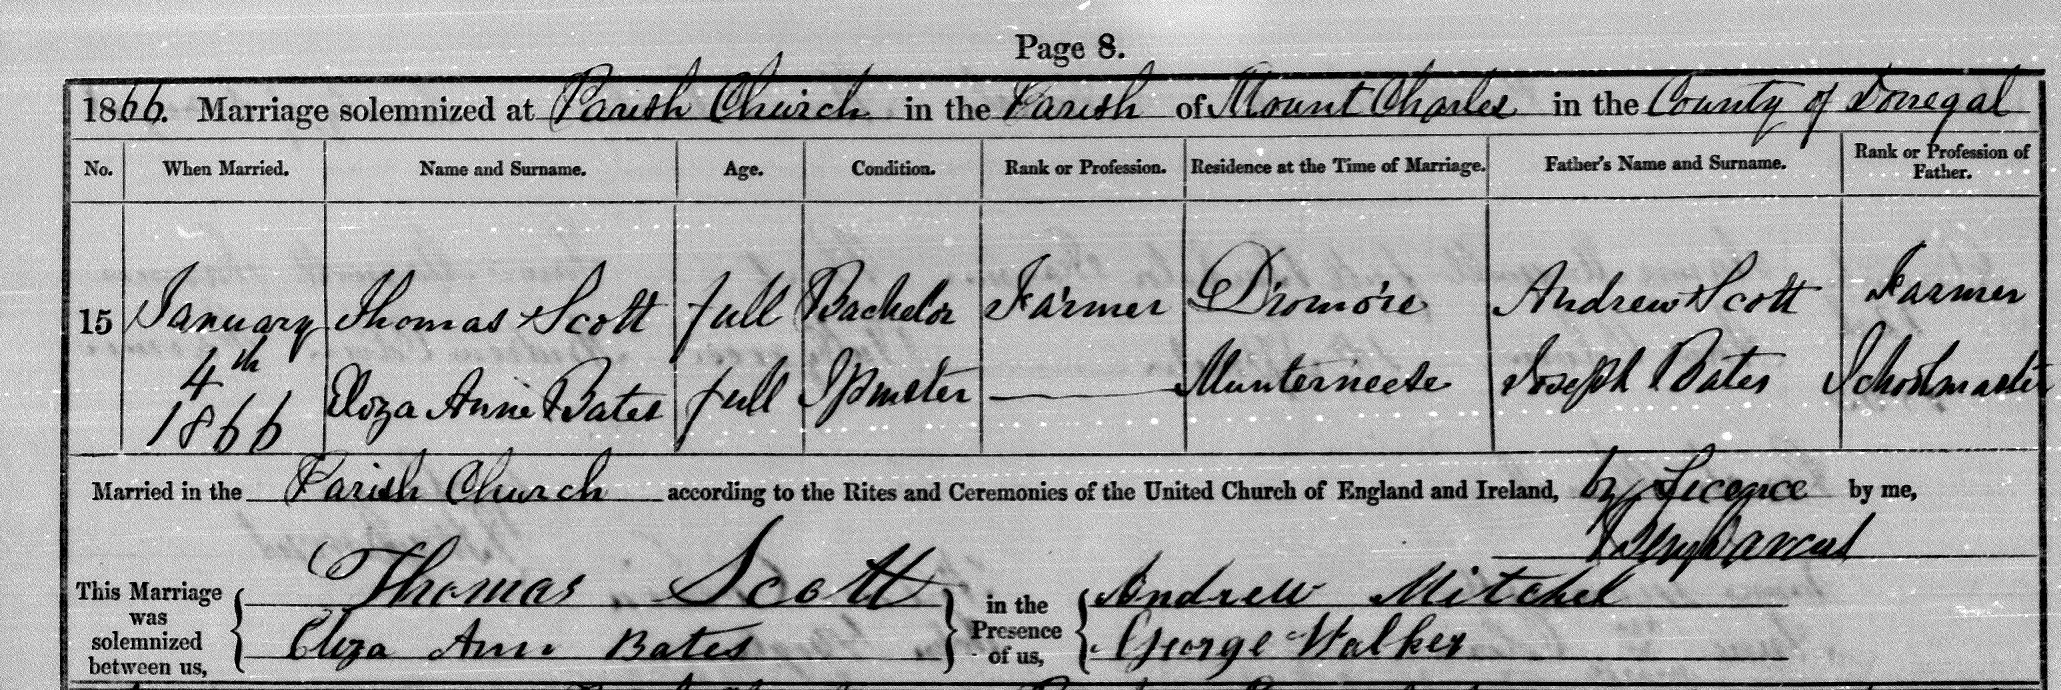 Page 8.
1866. Marriage solemnized at Parish Church in the Parish of Mount Charles in the County of Donegal
No. When Married. Name and Surname. Age. Condition. Rank or Profession. Residence at the Time of Marriage. Father's Name and Surname. Rank or Profession of Father.
15 January 4th 1866
Thomas Scott full Bachelor Farmer Dromore Andrew Scott Farmer
Eliza Anne Bates full Spinster — Munterneese Joseph Bates Schoolmaster
Married in the Parish Church according to the Rites and Ceremonies of the United Church of England and Ireland, by Licence by me,
This Marriage was solemnized between us,
Thomas Scott
Eliza Ann Bates
in the Presence of us,
Andrew Mitchel
George Walker